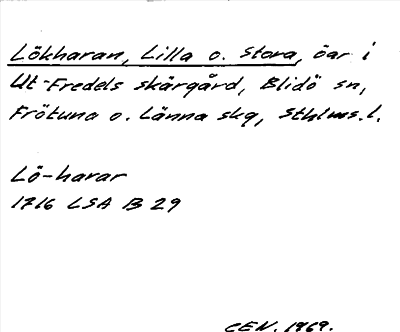 Lökharan, Lilla o. Stora, öar i
Ut-Fredels skärgård, Blidö sn,
Frötuna o. Länna skg, Sthlms.l.
Lö-harar
1716 LSA B 29
CEN. 1969.